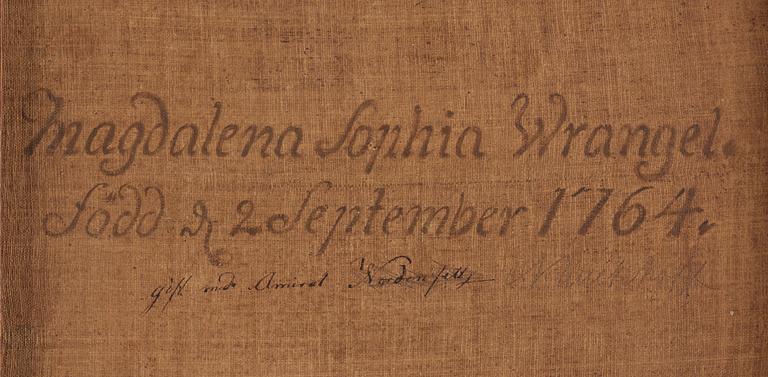 Magdalena Sophia Wrangel.
Född d. 2 September 1764.
gift med Amiral Nordenfelt